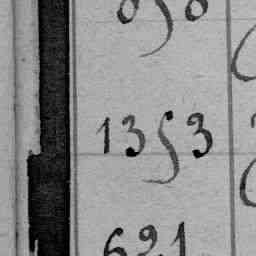 1353
621